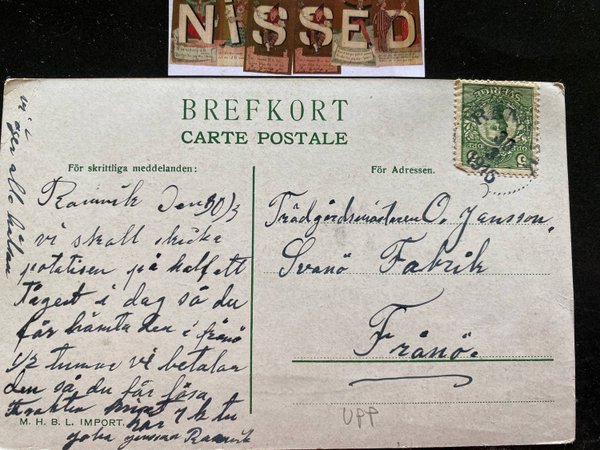 NiSSED
BREFKORT
CARTE POSTALE
För skrittliga meddelanden:
För Adressen.
vi
eger alla
Ramvik Den 30/3
vi skall skicka
potatisen på half ått
Tåget i dag så du
får hämta den i frånö
1/2 tunna vi betalar
den så du får lösa
frakten
M. H. B. L. IMPORT.
Ramvik
Trädgårdsmästaren O. Jansson,
Svanö Fabrik
Frånö.
UPP